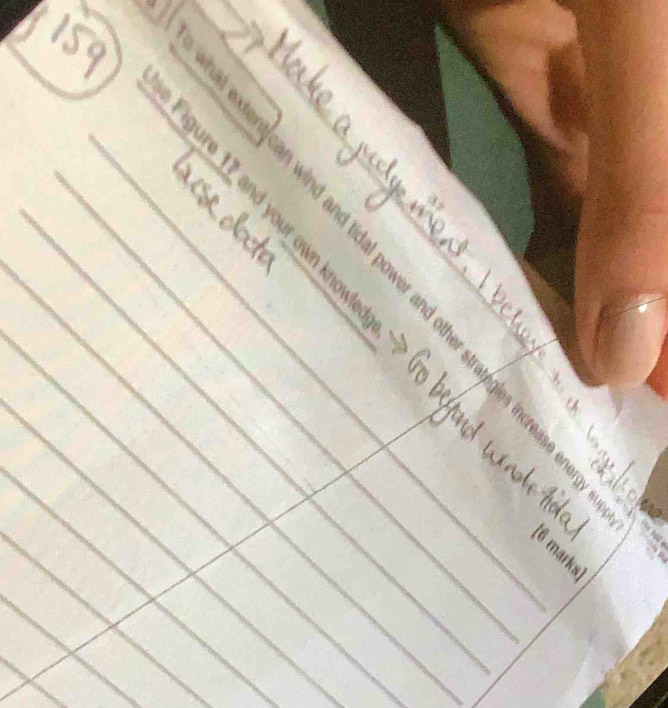 159
Make a judgement. I believe to a large
To what extent can wind and tidal power and other strategies increase energy supply?
Use Figure 12 and your own knowledge. → Go beyond wind & tidal
use data
[6 marks]